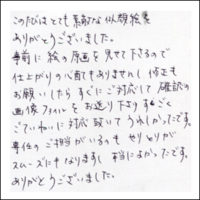 このたびはとても素敵な似顔絵を
ありがとうございました。
事前に絵の原画を見せて下さるので
仕上がりの心配もありませんし修正も
お願いしたらすぐにご対応して確認の
画像ファイルをお送り下さりすごく
ていねいに対応頂いてうれしかったです。
専任のご担当がいるのもやりとりが
スムーズに本当によかったです。
ありがとうございました。